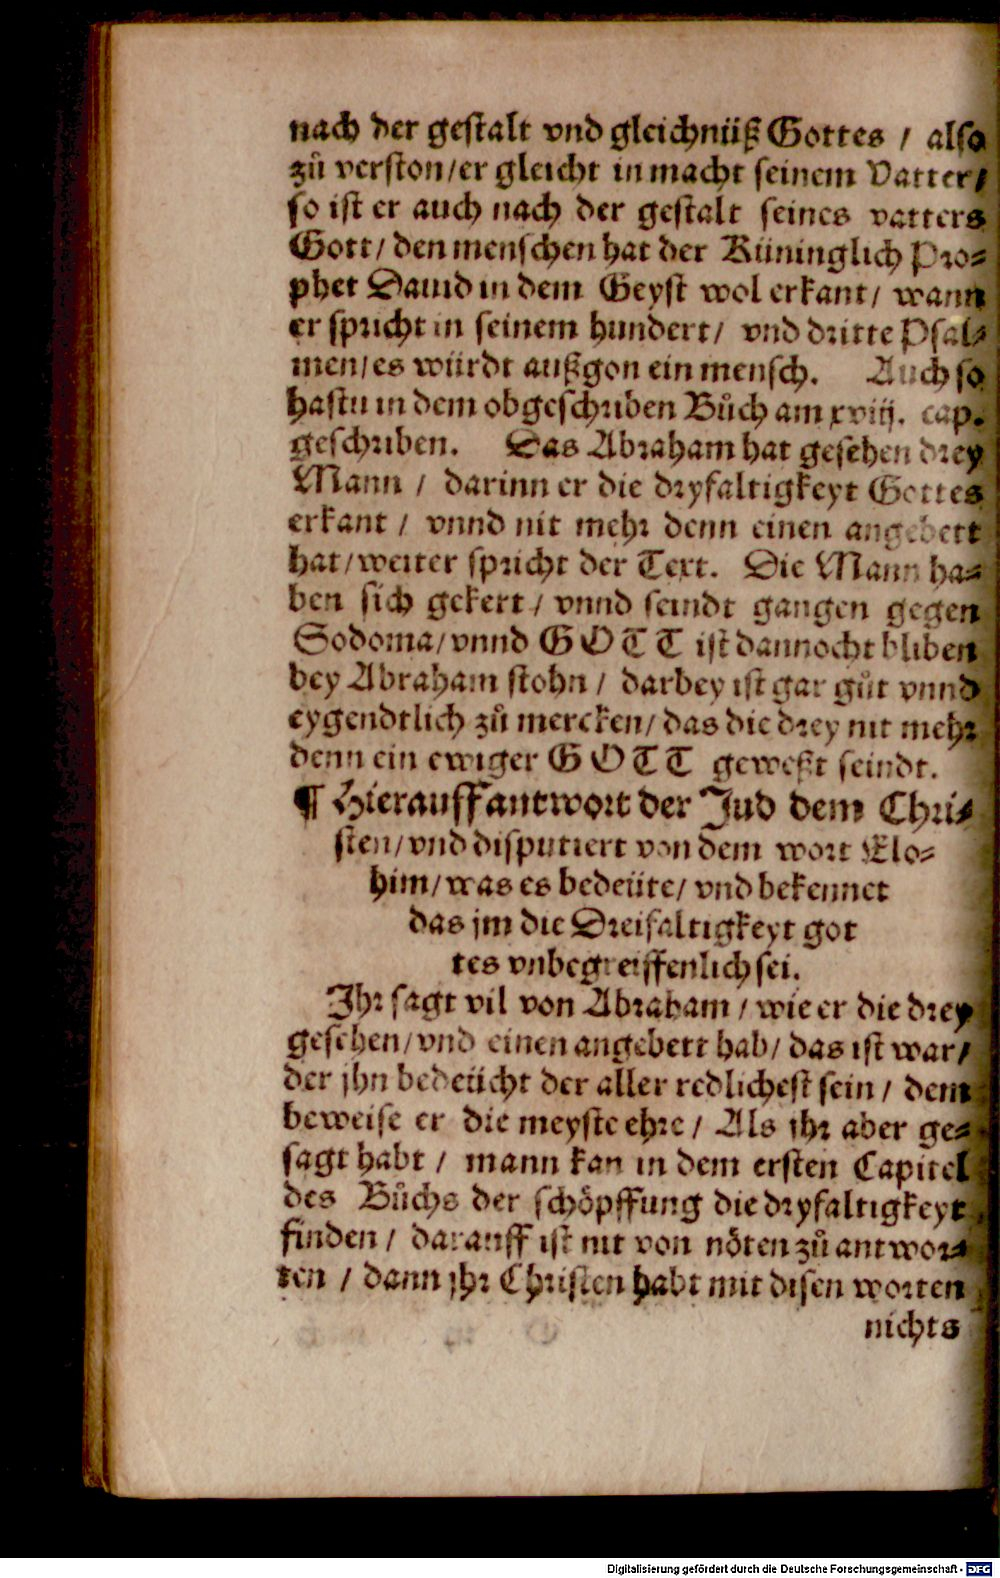 nach der gestalt vnd gleichnüß Gottes / also
zů verston/er gleicht in macht seinem Vatter/
so ist er auch nach der gestalt seines vatters
Gott/ den menschen hat der Küninglich Pro-
phet Dauid in dem Geyst wol erkant/ wann
er spricht in seinem hundert/ vnd dritte Psal-
men/es würdt außgon ein mensch. Auch so
hastu in dem obgeschriben Bůch am xviij. cap.
geschriben. Das Abraham hat gesehen drey
Mann / darinn er die dryfaltigkeyt Gottes
erkant / vnnd nit mehr denn einen angebett
hat/weiter spricht der Text. Die Mann ha-
ben sich gekert / vnnd seindt gangen gegen
Sodoma/vnnd GOTT ist dannocht bliben
bey Abraham stohn / darbey ist gar gůt vnnd
eygendtlich zů mercken/ das die drey nit mehr
denn ein ewiger GOTT geweßt seindt.
¶ Hierauff antwort der Jud dem Chri-
sten/vnd disputiert von dem wort Elo-
him/was es bedeüte/ vnd bekennet
das jm die Dreifaltigkeyt got
tes vnbegreiffenlich sei.
Ihr sagt vil von Abraham / wie er die drey
gesehen/vnd einen angebett hab/ das ist war/
der jhn bedeücht der aller redlichest sein / dem
beweise er die meyste ehre / Als jhr aber ge-
sagt habt / mann kan in dem ersten Capitel
des Bůchs der schöpffung die dryfaltigkeyt
finden / darauff ist nit von nöten zů antwor-
ten / dann jhr Christen habt mit disen worten
nichts
Digitalisierung gefördert durch die Deutsche Forschungsgemeinschaft - DFG